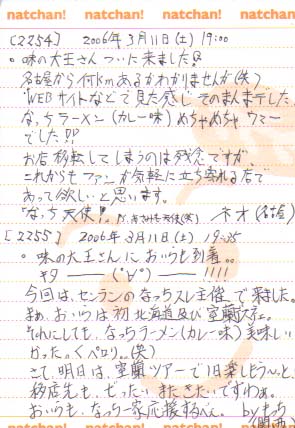 natchan! natchan! natchan! natchan!
[2254] 2006年3月11日(土) 19:00
。味の大王さん ついに来ました!!
名古屋から何kmあるかわかりませんが(笑)
WEBサイトなどで見た感じ そのまんまでした
なっちラーメン(カレー味)めちゃめちゃ ウマー
でした!!
お店 移転してしまうのは残念ですが、
これからも ファンが気軽に立ち寄れる店で
あって欲しいと思います。
"なっち天使!" ネオ(名古屋)
[2255] 2006年3月11日(土) 19:35
。味の大王さんに おいらも到着。。
キター(゚∀゚)ー!!!!
今回は、センランのなっちスレ主催で来ました。
まぁ、おいらは初北海道及び室蘭です。
それにしても、なっちラーメン(カレー味)美味しい
かったっぺペロリ。(笑)
さて、明日は、室蘭ツアーで1日楽しむべ〜と、
移店先も、ぜったい またきたいですわぁ。
おいらも、なっち一家応援するべ。 byもっち
(関西)